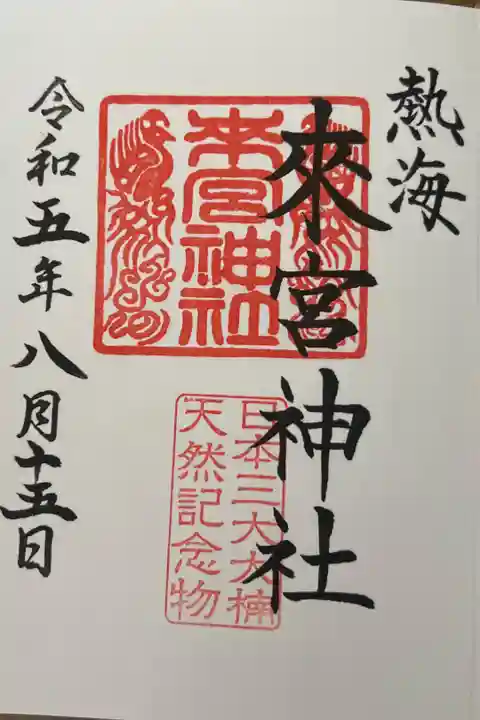 熱海
來宮神社
來宮神社
日本三大大楠
天然記念物
令和五年八月十五日